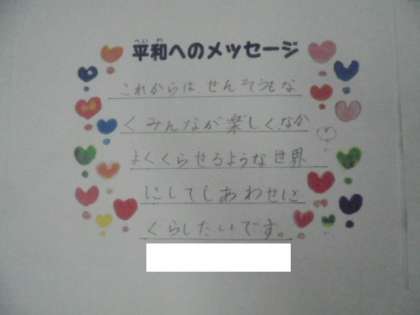 平和へのメッセージ
これからは せんそうもな
くみんなが楽しくなか
よくくらせるような世界
にしてしあわせに
くらしたいです。